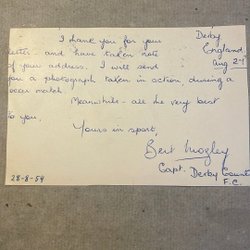 I thank you for your
Derby
England
Aug 27
letter - and have taken note
of your address. I will send
you a photograph taken in action, during a
soccer match.
Meanwhile - all the very best
to you,
Yours in sport,
Bert Mozley
Capt. Derby County
F.C.
28-8-54